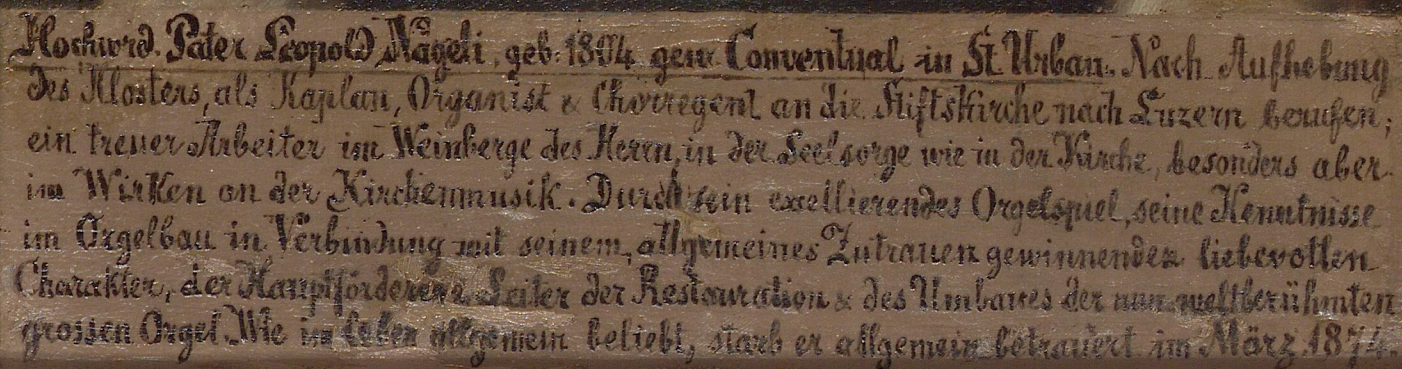 Hochwrd. Pater Leopold Nägeli, geb. 1804 gew Conventual in St. Urban. Nach Aufhebung
des Klosters, als Kaplan, Organist & Chorregent an die Stiftskirche nach Luzern berufen;
ein treuer Arbeiter im Weinberge des Herrn, in der Seelsorge wie in der Kirche, besonders aber
im Wirken an der Kirchenmusik. Durch sein excellierendes Orgelspiel, seine Kenntnisse
im Orgelbau in Verbindung mit seinem, allgemeines Zutrauen gewinnenden liebevollen
Charakter, der Hauptförderer & Leiter der Restauration & des Umbaues der nun weltberühmten
grossen Orgel. Wie im Leben allgemein beliebt, starb er allgemein betrauert im März 1874.